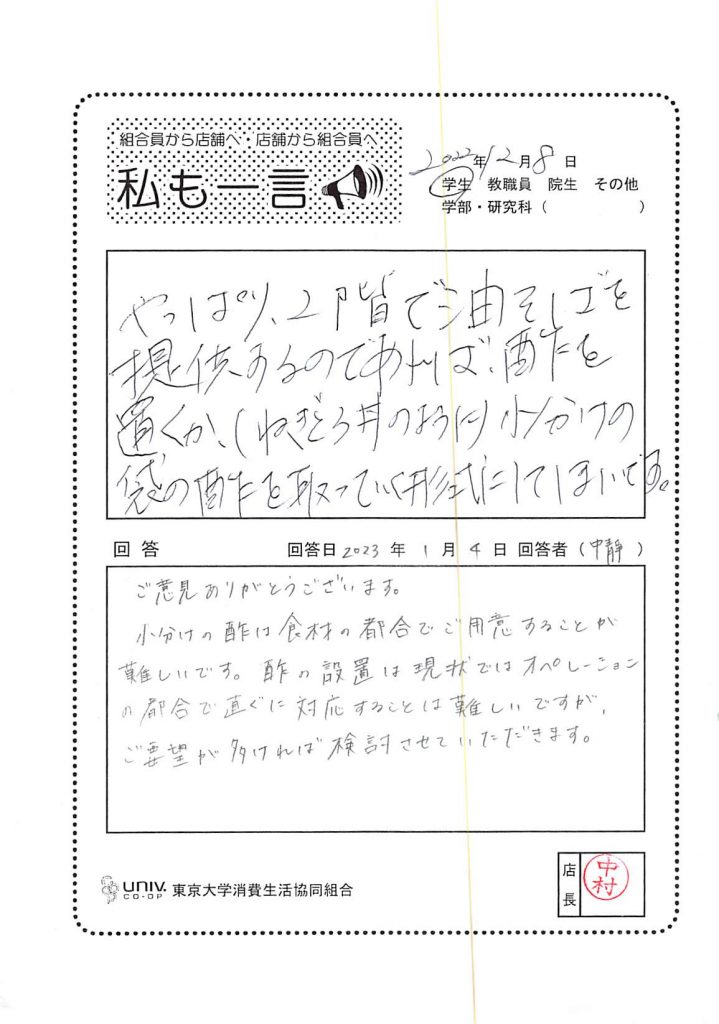 組合員から店舗へ・店舗から組合員へ
私も一言
2022年12月8日
学生 教職員 院生 その他
学部・研究科( )
やっぱり、2階で油そばを
提供するのであれば、酢を
置くか、(ねぎとろ丼のように)小分けの
袋の酢を取っていく形式にしてほしいです。
回答 回答日2023年1月4日 回答者(中静)
ご意見ありがとうございます。
小分けの酢は食材の都合でご用意することが
難しいです。酢の設置は現状ではオペレーション
の都合で直ぐに対応することは難しいですが、
ご要望が多ければ検討させていただきます。
UNIV.
CO-OP
東京大学消費生活協同組合
店長
中村